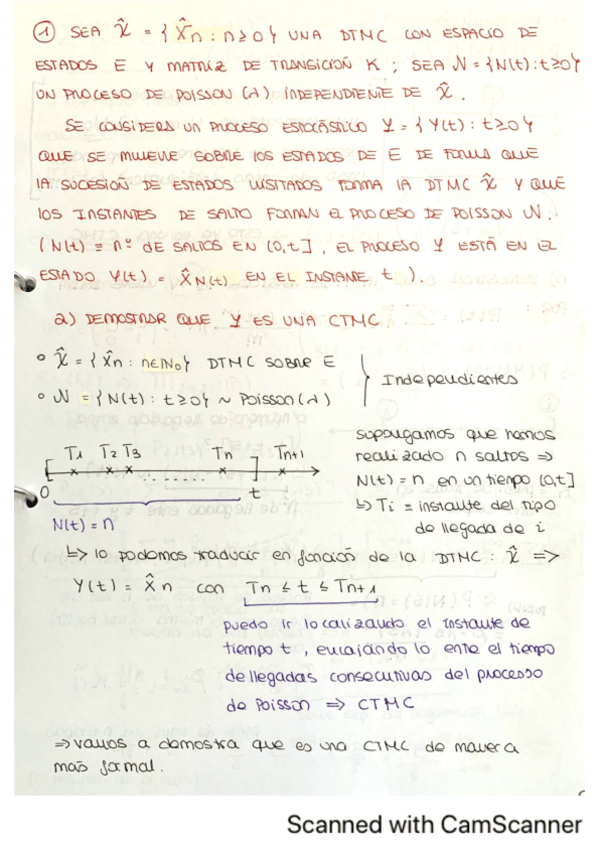 ① SEA X̂ = { X̂n : n ≥ 0 } UNA DTMC CON ESPACIO DE
ESTADOS E Y MATRIZ DE TRANSICIÓN K ; SEA N = {N(t) : t ≥ 0}
UN PROCESO DE POISSON (λ) INDEPENDIENTE DE X̂ .
SE CONSIDERA UN PROCESO ESTOCÁSTICO Y = { Y(t) : t ≥ 0 }
QUE SE MUEVE SOBRE LOS ESTADOS DE E DE FORMA QUE
LA SUCESIÓN DE ESTADOS VISITADOS FORMA LA DTMC X̂ Y QUE
LOS INSTANTES DE SALTO FORMAN EL PROCESO DE POISSON N.
( N(t) ≡ nº DE SALTOS EN (0,t] , EL PROCESO Y ESTÁ EN EL
ESTADO Y(t) = X̂N(t) EN EL INSTANTE t ).
a) DEMOSTRAR QUE Y ES UNA CTMC
o X̂ = { X̂n : n ∈ IN₀ } DTMC SOBRE E
o N = { N(t) : t ≥ 0 } ~ Poisson (λ)
Independientes
T1 T2 T3 Tn Tn+1
0 ...... t
N(t) = n
supongamos que hemos
realizado n saltos ⇒
N(t) = n en un tiempo (0,t]
↳ Ti ≡ instante del tipo
de llegada de i
↳ lo podemos traducir en función de la DTMC : X̂ ⇒
Y(t) = X̂n con Tn ≤ t ≤ Tn+1
puedo ir localizando el instante de
tiempo t , encajándolo ente el tiempo
de llegadas consecutivas del processo
de Poisson ⇒ CTMC
⇒ vamos a demostra que es una CTMC de manera
más formal.
Scanned with CamScanner